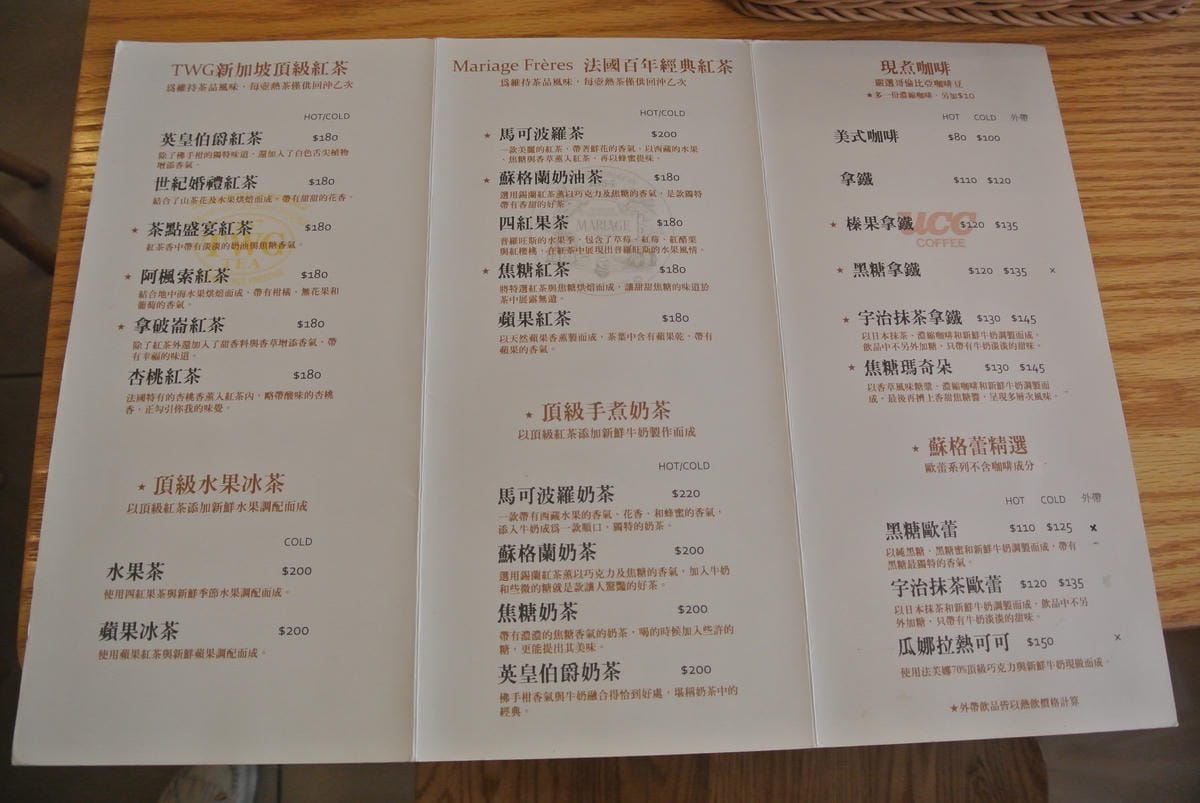 TWG新加坡頂級紅茶
為維持茶品風味，每壺熱茶僅供回沖乙次
HOT/COLD
英皇伯爵紅茶 $180
除了佛手柑的獨特味道，還加入了白色舌尖植物
增添香氣。
世紀婚禮紅茶 $180
結合了山茶花及水果烘焙而成，帶有甜甜的花香。
★ 茶點盛宴紅茶 $180
紅茶香中帶有淡淡的奶油與焦糖香氣。
TWG
TEA
★ 阿楓索紅茶 $180
結合地中海水果烘焙而成，帶有柑橘、無花果和
葡萄的香氣。
★ 拿破崙紅茶 $180
除了紅茶外還加入了甜香料與香草增添香氣，帶
有幸福的味道。
杏桃紅茶 $180
法國特有的杏桃香薰入紅茶內，略帶酸味的杏桃
香，正勾引你我的味覺。
★ 頂級水果冰茶
以頂級紅茶添加新鮮水果調配而成
COLD
水果茶 $200
使用四紅果茶與新鮮季節水果調配而成。
蘋果冰茶 $200
使用蘋果紅茶與新鮮蘋果調配而成。
Mariage Frères 法國百年經典紅茶
為維持茶品風味，每壺熱茶僅供回沖乙次
HOT/COLD
★ 馬可波羅茶 $200
一款美麗的紅茶，帶著鮮花的香氣。以西藏的水果
、焦糖與香草薰入紅茶，再以蜂蜜提味。
★ 蘇格蘭奶油茶 $180
選用錫蘭紅茶薰以巧克力及焦糖的香氣，是款獨特
帶有香甜的好茶。
四紅果茶 $180
MARIAGE
普羅旺斯的水果季，包含了草莓、紅莓、紅醋栗
與紅櫻桃，在紅茶中展現出普羅旺斯的水果風情。
★ 焦糖紅茶 $180
將特選紅茶與焦糖烘焙而成，讓甜甜焦糖的味道於
茶中展露無遺。
蘋果紅茶 $180
以天然蘋果香薰製而成，茶葉中含有蘋果乾，帶有
蘋果的香氣。
★ 頂級手煮奶茶
以頂級紅茶添加新鮮牛奶製作而成
HOT/COLD
馬可波羅奶茶 $220
一款帶有西藏水果的香氣、花香、和蜂蜜的香氣，
添入牛奶成為一款順口、獨特的奶茶。
蘇格蘭奶茶 $200
選用錫蘭紅茶薰以巧克力及焦糖的香氣，加入牛奶
和些微的糖就是款讓人驚豔的好茶。
焦糖奶茶 $200
帶有濃濃的焦糖香氣的奶茶，喝的時候加入些許的
糖，更能提出其美味。
英皇伯爵奶茶 $200
佛手柑香氣與牛奶融合得恰到好處，堪稱奶茶中的
經典。
現煮咖啡
嚴選哥倫比亞咖啡豆
★多一份濃縮咖啡，另加$20
HOT COLD 外帶
美式咖啡 $80 $100
拿鐵 $110 $120
★ 榛果拿鐵 $120 $135
UCC
COFFEE
★ 黑糖拿鐵 $120 $135 ×
★ 宇治抹茶拿鐵 $130 $145
以日本抹茶、濃縮咖啡和新鮮牛奶調製而成，
飲品中不另外加糖，只帶有牛奶淡淡的甜味。
★ 焦糖瑪奇朵 $130 $145
以香草風味糖漿、濃縮咖啡和新鮮牛奶調製而
成，最後再擠上香甜焦糖醬，呈現多層次風味。
★ 蘇格蕾精選
歐蕾系列不含咖啡成分
HOT COLD 外帶
黑糖歐蕾 $110 $125 ×
以純黑糖、黑糖蜜和新鮮牛奶調製而成，帶有
黑糖最獨特的香氣。
宇治抹茶歐蕾 $120 $135
以日本抹茶和新鮮牛奶調製而成，飲品中不另
外加糖，只帶有牛奶淡淡的甜味。
瓜娜拉熱可可 $150 ×
使用法芙娜70%頂級巧克力與新鮮牛奶現做而成。
★外帶飲品皆以熱飲價格計算